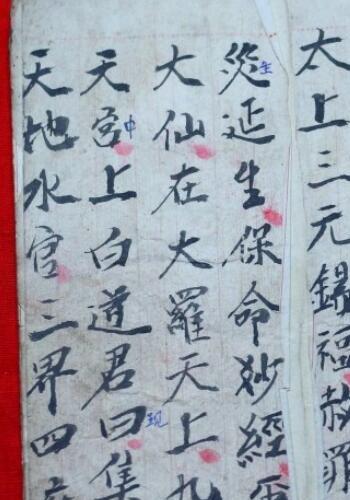 太上三元錫福赦罪
災延生保命妙經
生
大仙在大羅天上九
天宮上白道君曰集
中
现
天地水官三界四